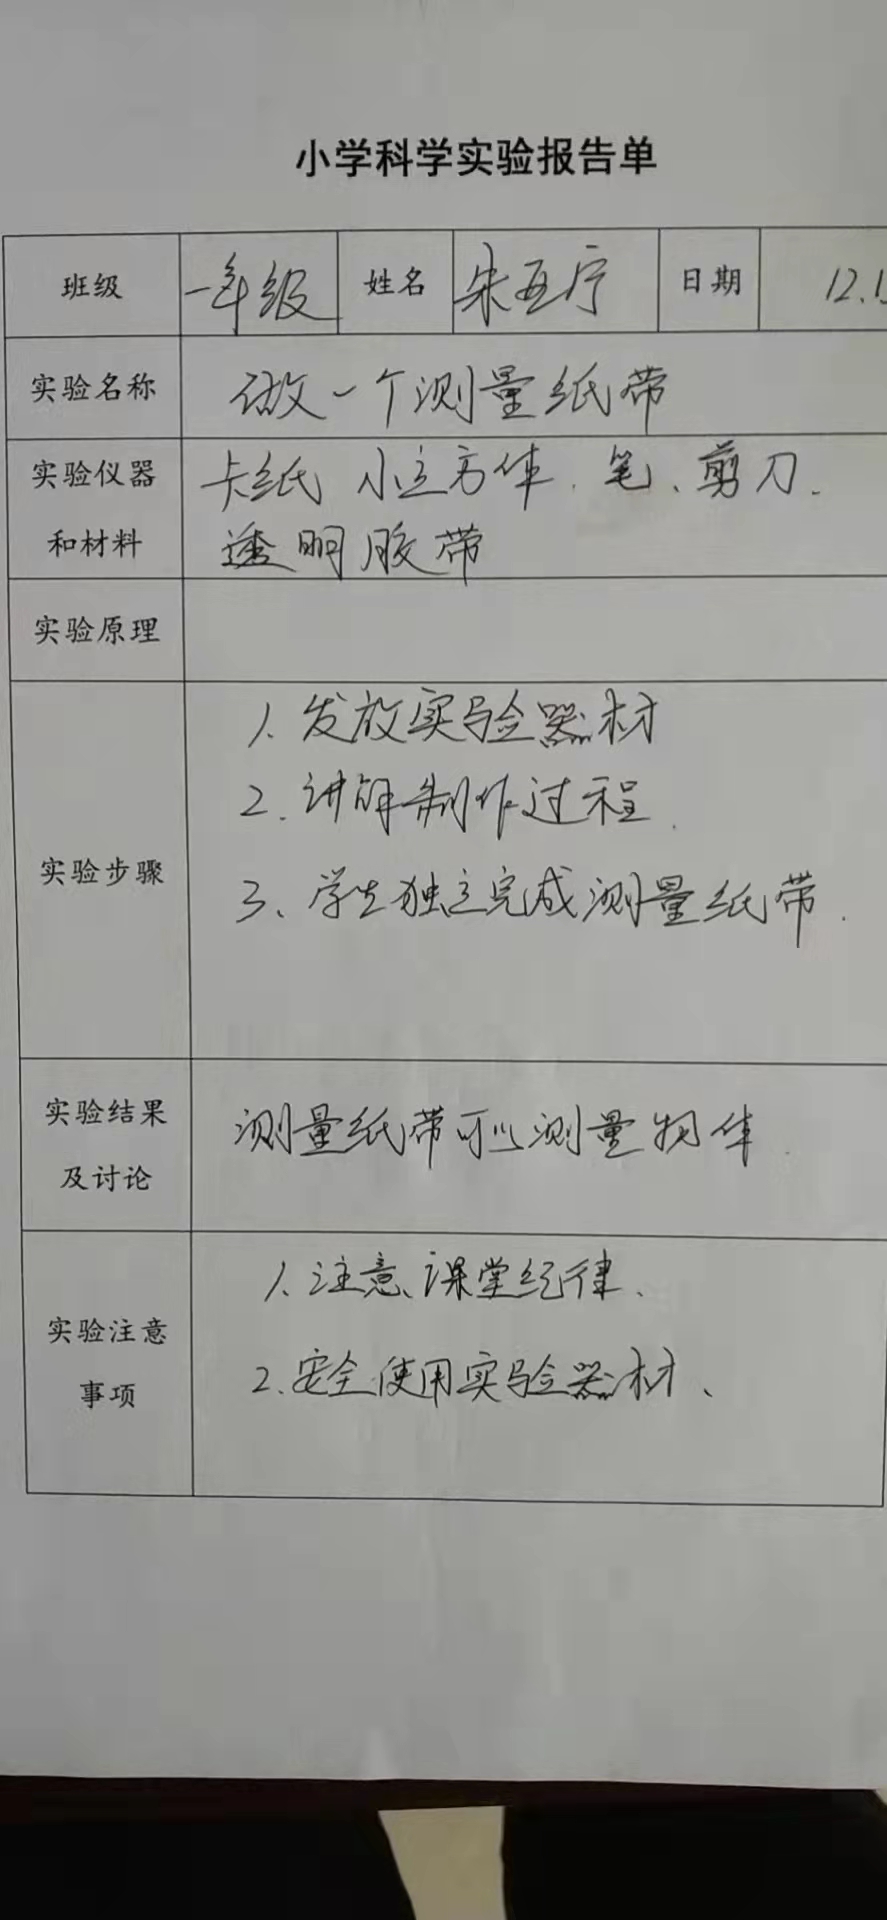 小学科学实验报告单
班级 一年级 姓名 朱五宁 日期 12.1
实验名称 做一个测量纸带
实验仪器 卡纸 小立方体、笔、剪刀、
和材料 透明胶带
实验原理
1、发放实验器材
2、讲解制作过程.
实验步骤
3、学生独立完成测量纸带.
实验结果
及讨论
测量纸带可以测量物体.
1、注意课堂纪律、
实验注意
事项
2、安全使用实验器材、